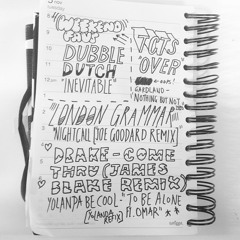 tuesday
WEEKEND
FAVS
DUBBLE
DUTCH
"INEVITABLE"
TCTS
"OVER"
oops!
GARDLAND -
NOTHING BUT NOT
LONDON GRAMMAR
NIGHTCALL [JOE GOODARD REMIX]
DRAKE - COME
THRU (JAMES
BLAKE REMIX)
YOLANDA BE COOL - "TO BE ALONE
FT. OMAR"